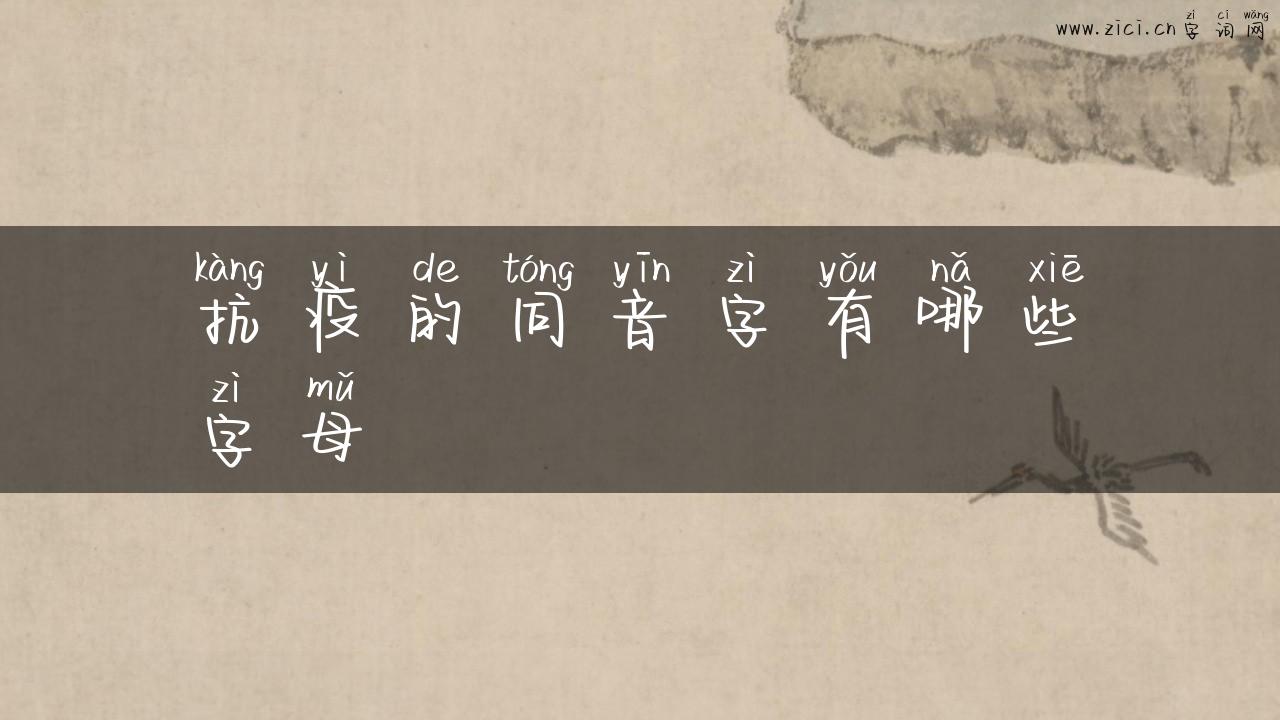 zì cí wǎng
www.zici.cn 字词网
kàng yì de tóng yīn zì yǒu nǎ xiē
抗疫的同音字有哪些
zì mǔ
字母